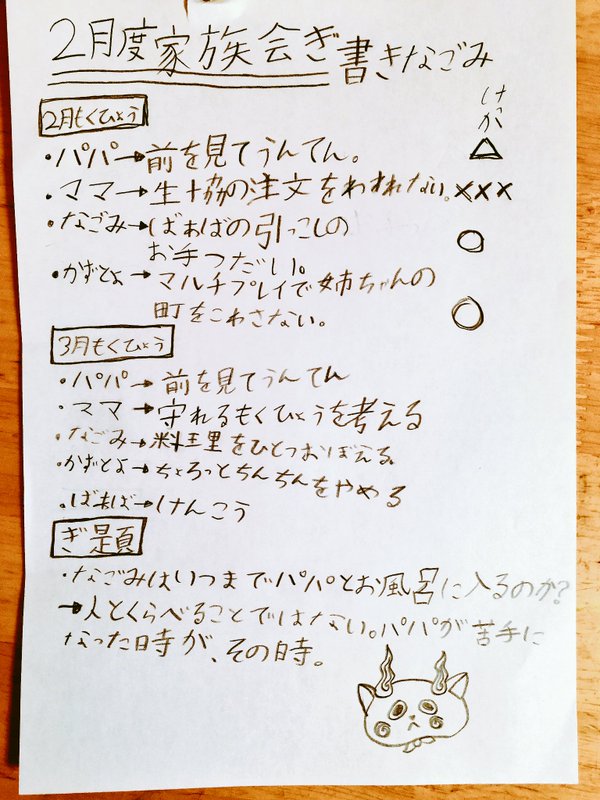 2月度家族会ぎ 書きなごみ
けっか
2月もくひょう
・パパ→前を見てうんてん。 △
・ママ→生協の注文をわすれない。×××
・なごみ→ばぁばの引っこしの
お手つだい。 ○
・かずとよ→マルチプレイで姉ちゃんの
町をこわさない。 ○
3月もくひょう
・パパ→前を見てうんてん
・ママ→守れるもくひょうを考える
・なごみ→料理をひとつおぼえる。
・かずとよ→ちょろっとちんちんをやめる
・ばぁば→けんこう
ぎ題
・なごみはいつまでパパとお風呂に入るのか?
→人とくらべることではない。パパが苦手に
なった時が、その時。